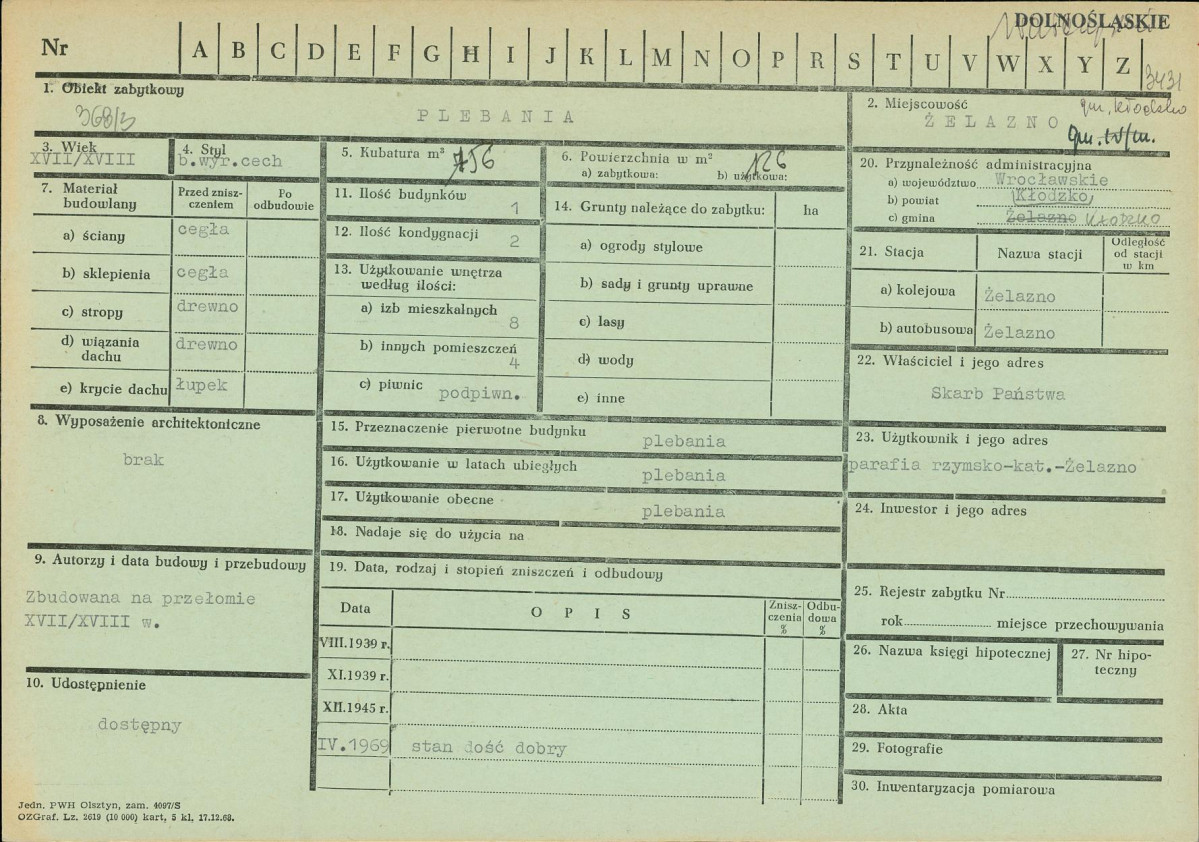 DOLNOŚLĄSKIE
Nr A B C D E F G H I J K L M N O P R S T U V W X Y Z
3431
1. Obiekt zabytkowy
368/5
PLEBANIA
2. Miejscowość
gm. Kłodzko
ŻELAZNO
3. Wiek
XVII/XVIII
4. Styl
b.wyr.cech
5. Kubatura m³ 756
6. Powierzchnia w m² 126
a) zabytkowa: b) użytkowa:
7. Materiał budowlany
Przed zniszczeniem
Po odbudowie
a) ściany cegła
b) sklepienia cegła
c) stropy drewno
d) wiązania dachu drewno
e) krycie dachu łupek
8. Wyposażenie architektoniczne
brak
9. Autorzy i data budowy i przebudowy
Zbudowana na przełomie
XVII/XVIII w.
10. Udostępnienie
dostępny
11. Ilość budynków 1
12. Ilość kondygnacji 2
13. Użytkowanie wnętrza
według ilości:
a) izb mieszkalnych 8
b) innych pomieszczeń 4
c) piwnic podpiwn.
14. Grunty należące do zabytku: ha
a) ogrody stylowe
b) sady i grunty uprawne
c) lasy
d) wody
e) inne
15. Przeznaczenie pierwotne budynku plebania
16. Użytkowanie w latach ubiegłych plebania
17. Użytkowanie obecne plebania
18. Nadaje się do użycia na
19. Data, rodzaj i stopień zniszczeń i odbudowy
Data OPIS Zniszczenia % Odbudowa %
VIII.1939 r.
XI.1939 r.
XII.1945 r.
IV.1969 stan dość dobry
20. Przynależność administracyjna
a) województwo Wrocławskie
b) powiat Kłodzko
c) gmina Żelazno Kłodzko
21. Stacja Nazwa stacji Odległość od stacji w km
a) kolejowa Żelazno
b) autobusowa Żelazno
22. Właściciel i jego adres
Skarb Państwa
23. Użytkownik i jego adres
parafia rzymsko-kat.-Żelazno
24. Inwestor i jego adres
25. Rejestr zabytku Nr
rok miejsce przechowywania
26. Nazwa księgi hipotecznej
27. Nr hipoteczny
28. Akta
29. Fotografie
30. Inwentaryzacja pomiarowa
Jedn. PWH Olsztyn, zam. 4097/S
OZGraf. Lz. 2619 (10 000) kart, 5 kl, 17.12.68.